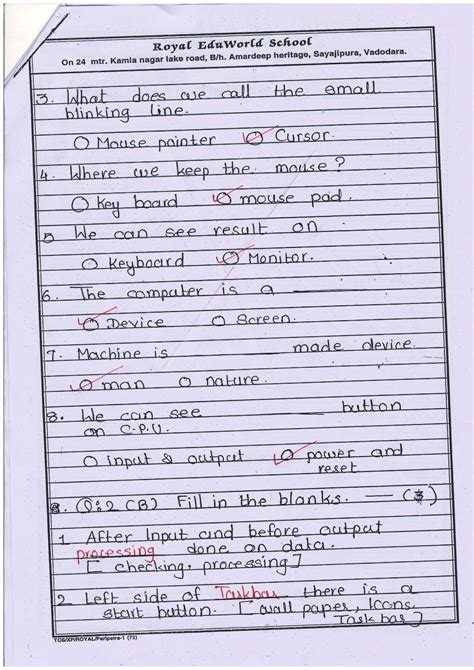 Royal EduWorld School
On 24 mtr. Kamla nagar lake road, B/h. Amardeep heritage, Sayajipura, Vadodara.
3. What does we call the small
blinking line.
Mouse pointer Cursor.
4. Where we keep the mouse?
Key board mouse pad.
5 We can see result on
Keyboard Monitor.
6. The computer is a ________
Device Screen.
7. Machine is ________ made device.
man nature.
8. We can see ________ button
on C.P.U.
input & output power and
reset
Q:2 (B) Fill in the blanks. — (3)
1 After Input and before output
processing done on data.
[checking, processing]
2 Left side of Taskbar there is a
start button. [wall paper, Icons,
Task bar]
TCS/XP/ROYAL/Paripatra-1 (73)